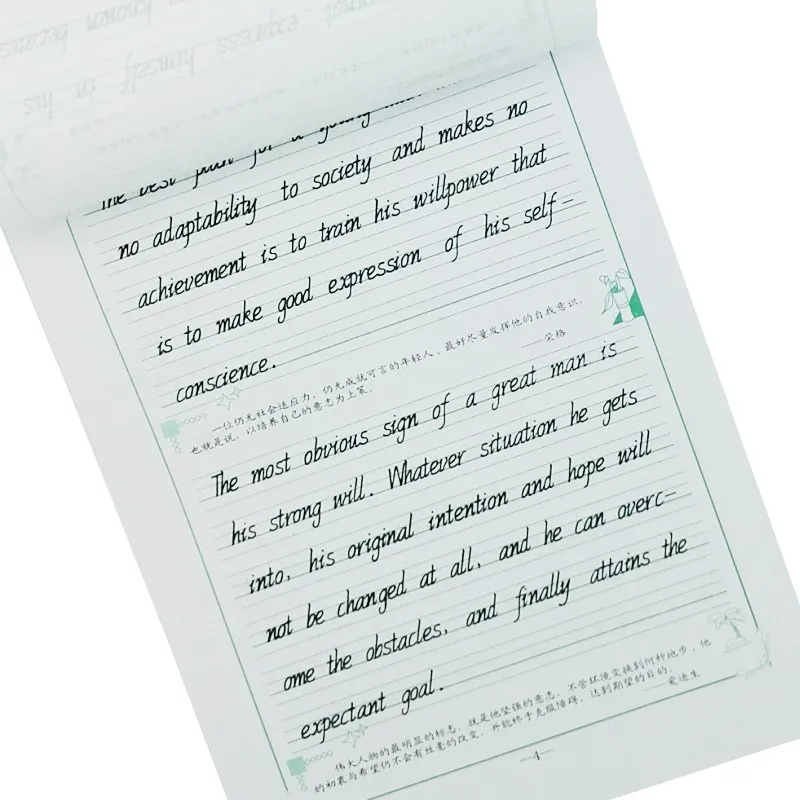 express himself in his
known because
The best plan for a young
no adaptability to society and makes no
achievement is to train his willpower that
is to make good expression of his self-
conscience.
一位仍无社会适应力，仍无成就可言的年轻人，最好尽量发挥他的自我意识，
也就是说，以培养自己的意志为上策。
——荣格
The most obvious sign of a great man is
his strong will. Whatever situation he gets
into, his original intention and hope will
not be changed at all, and he can overc-
ome the obstacles, and finally attains the
expectant goal.
伟大人物的最明显的标志，就是他坚强的意志，不管环境变换到何种地步，他
的初衷与希望仍不会有丝毫的改变，并能终于克服障碍，达到期望的目的。
——爱迪生
—4—